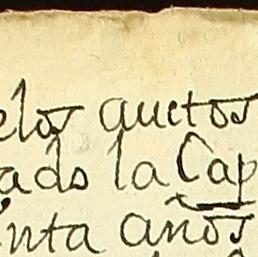 elos auctos
ado la Cap
enta años